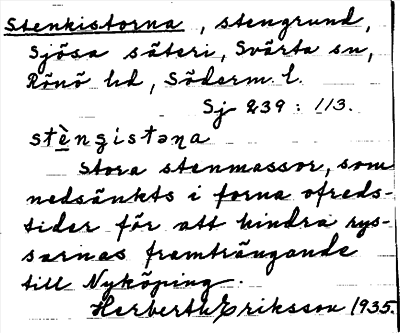 Stenkistorna, stengrund,
Sjösa säteri, Svärta sn,
Rönö hd, Söderm. l.
Sj 239 : 113.
stèngistəṇa
Stora stenmassor, som
nedsänkts i forna ofreds-
tider för att hindra rys-
sarnas framträngande
till Nyköping.
Herberth Eriksson 1935.